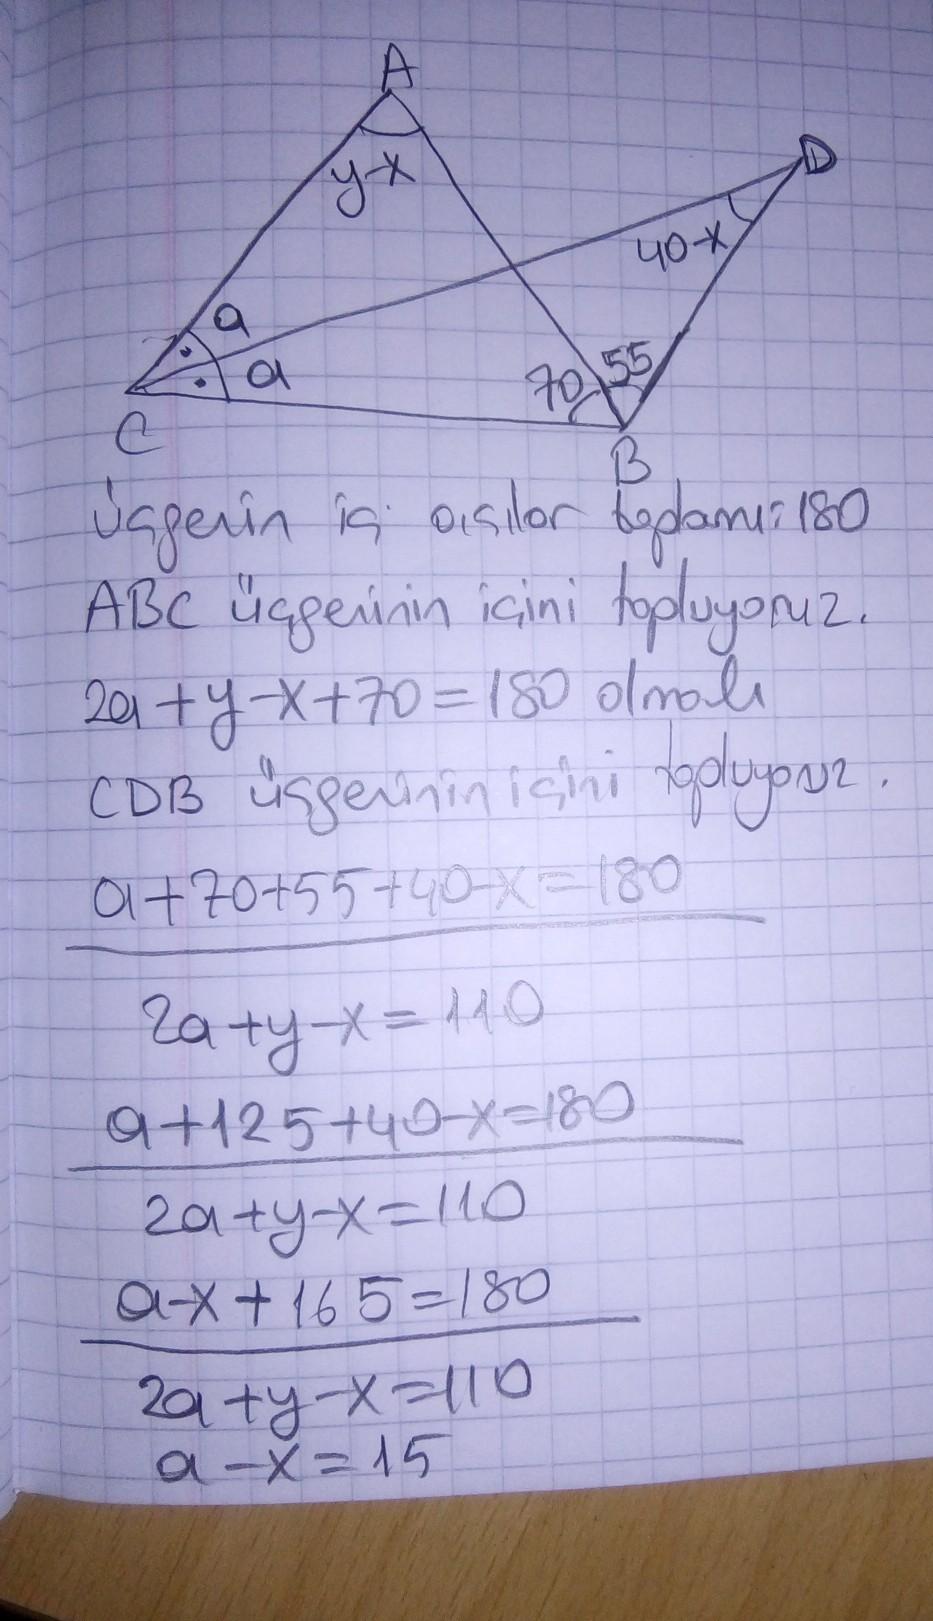 A
D
y-x
40-x
a
a
70
55
C
B
Üçgenin iç açılar toplamı=180
ABC üçgeninin içini topluyoruz.
2a+y-x+70=180 olmalı
CDB üçgeninin içini topluyoruz.
a+70+55+40-x=180
2a+y-x=110
a+125+40-x=180
2a+y-x=110
a-x+165=180
2a+y-x=110
a-x=15